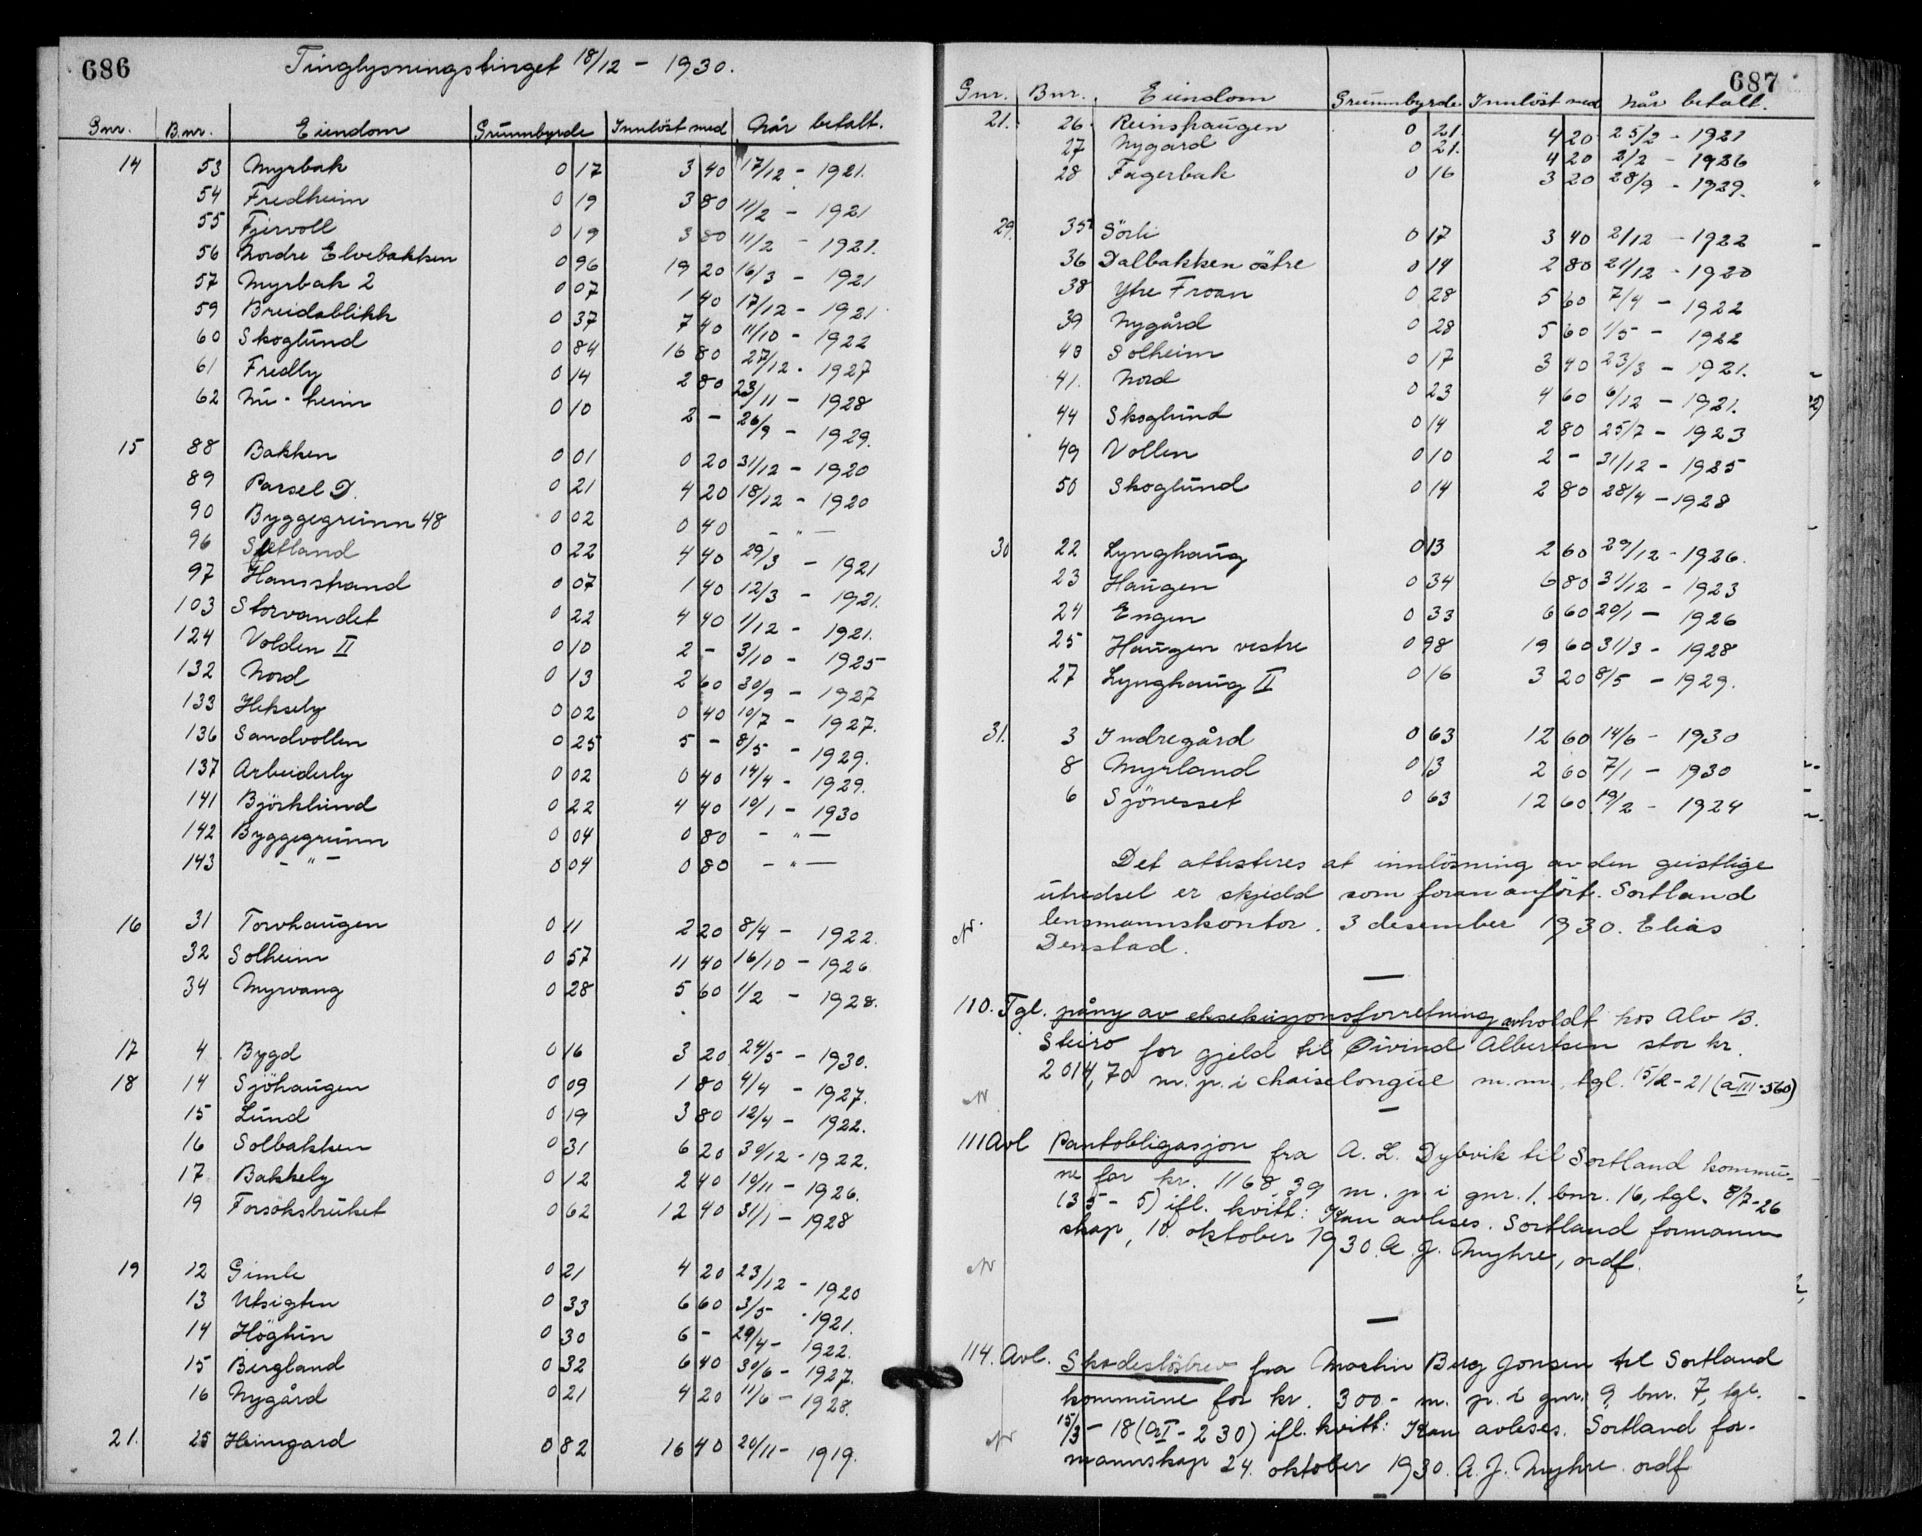 686
Tinglysningstinget 18/12 - 1930.
Gnr. B.nr. Eiendom Grunnbyrde Innlöst med Når betalt.
14 53 Myrbak 0 17 3 40 17/12 - 1921.
54 Fredheim 0 19 3 80 11/2 - 1921
55 Fjervoll 0 19 3 80 11/2 - 1921.
56 Nordre Elvebakken 0 96 19 20 16/3 - 1921
57 Myrbak 2 0 07 1 40 17/12 - 1921
59 Breidablikk 0 37 7 40 11/10 - 1922
60 Skoglund 0 84 16 80 27/12 - 1927
61 Fredly 0 14 2 80 23/11 - 1928
62 Ni-heim 0 10 2 - 26/9 - 1929.
15 88 Bakken 0 01 0 20 31/12 - 1920
89 Parsel D. 0 21 4 20 18/12 - 1920
90 Byggegrunn 48 0 02 0 40 - " -
96 Sletland 0 22 4 40 29/3 - 1921
97 Hansstrand 0 07 1 40 12/3 - 1921.
103 Storvandet 0 22 4 40 1/12 - 1921.
124 Volden II 0 10 2 - 3/10 - 1925
132 Nord 0 13 2 60 30/9 - 1927
133 Heksely 0 02 0 40 10/7 - 1927.
136 Sandvollen 0 25 5 - 8/5 - 1929.
137 Arbeiderly 0 02 0 40 14/4 - 1929.
141 Björklund 0 22 4 40 10/1 - 1930
142 Byggegrunn 0 04 0 80 - " -
143 - " - 0 04 0 80 - " -
16 31 Torvhaugen 0 11 2 20 8/4 - 1922.
32 Solheim 0 57 11 40 16/10 - 1926
34 Myrvang 0 28 5 60 1/2 - 1928.
17 4 Bygd 0 16 3 20 24/5 - 1930.
18 14 Sjöhaugen 0 09 1 80 4/4 - 1927.
15 Lund 0 19 3 80 12/4 - 1922.
16 Solbakken 0 31 6 20 30/12 - 1922.
17 Bakkely 0 12 2 40 10/11 - 1926.
19 Forsöksbruket 0 62 12 40 31/1 - 1928
19 12 Gimle 0 21 4 20 23/12 - 1920
13 Utsigten 0 33 6 60 3/5 - 1921.
14 Högtun 0 30 6 - 29/4 - 1922.
15 Bergland 0 32 6 40 30/6 - 1927.
16 Nygård 0 21 4 20 11/6 - 1928.
21. 25 Heimgard 0 82 16 40 20/11 - 1919.
687
Gnr. Bnr. Eiendom Grunnbyrde Innlöst med når betalt.
21. 26 Reinshaugen 0 21. 4 20 25/2 - 1921
27 Nygård 0 21. 4 20 2/2 - 1926
28 Fagerbak 0 16 3 20 28/9 - 1929.
29. 35 Sörli 0 17 3 40 2/12 - 1922
36 Dalbakken östre 0 14 2 80 21/12 - 1920
38 Ytre Froan 0 28 5 60 7/4 - 1922
39 Nygård 0 28 5 60 1/5 - 1922
40 Solheim 0 17 3 40 23/3 - 1921.
41. Nord 0 23 4 60 6/12 - 1921.
44 Skoglund 0 14 2 80 25/7 - 1923
49 Vollen 0 10 2 - 31/12 - 1925
50 Skoglund 0 14 2 80 28/4 - 1928
30 22 Lynghaug 0 13 2 60 29/12 - 1926.
23 Haugen 0 34 6 80 31/12 - 1923
24 Engen 0 33 6 60 20/1 - 1926
25 Haugen vestre 0 98 19 60 31/3 - 1928
27 Lynghaug II 0 16 3 20 8/5 - 1929.
31. 3 Indregård 0 63 12 60 14/6 - 1930
8 Myrland 0 13 2 60 7/1 - 1930
6 Sjönesset 0 63 12 60 19/2 - 1924
Det attesteres at innlösning av den geistlige
utredsel er skjedd som foran anfört. Sortland
lensmannskontor. 3 desember 1930. Elias
Denstad.
110. Tgl. påny av eksekusjonsforretning avholdt hos Alv B.
Steiro for gjeld til Øivind Albertsen stor kr.
2014,70 m. p. i chaiselongue m.m. tgl. 15/2-21 (a III-560)
111 Avl Pantobligasjon fra A. L. Dybvik til Sortland kommu-
ne for kr. 1168 39 m. p. i gnr. 1. bnr. 16, tgl. 8/7-26
(35-5) ifl. kvitt: Kan avleses. Sortland formann-
skap, 10. oktober 1930. A. J. Myhre, ordf.
114. Avl. Skadeslösbrev fra Martin Berg Jonsen til Sortland
kommune for kr. 300.- m. p. i gnr. 9 bnr. 7, tgl.
15/3-18 (a I-230) ifl. kvitt: Kan avleses. Sortland for-
mannskap 24. oktober 1930. A. J. Myhre ordf